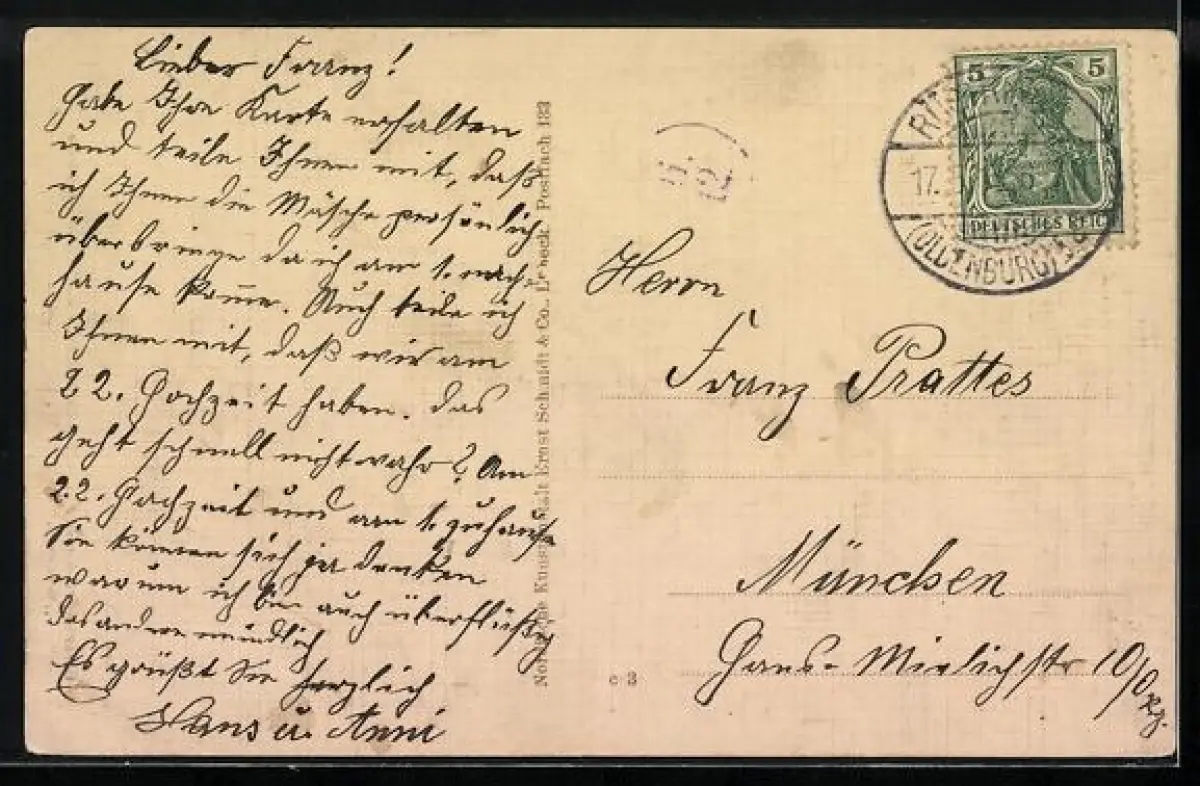 Lieber Franz!
Habe Ihre Karte erhalten
und teile Ihnen mit, daß
ich Ihnen die Wäsche persönlich
überbringe da ich am 1. nach-
hause komme. Auch teile ich
Ihnen mit, daß wir am
22. Hochzeit haben. Das
geht schnell nicht wahr? Am
22. Hochzeit und am 1. zuhause
Sie können sich ja denken
warum ich bin auch überflüßig
das andere mündlich
Es grüßt Sie herzlich
Hans u. Anni
Kunst Ernst Schmidt & Co. Postfach 183
5 5
DEUTSCHES REICH
17.
(OLDENBURG)
12
Herrn
Franz Prattes
München
Hans-Mielichstr 10/0
c 3